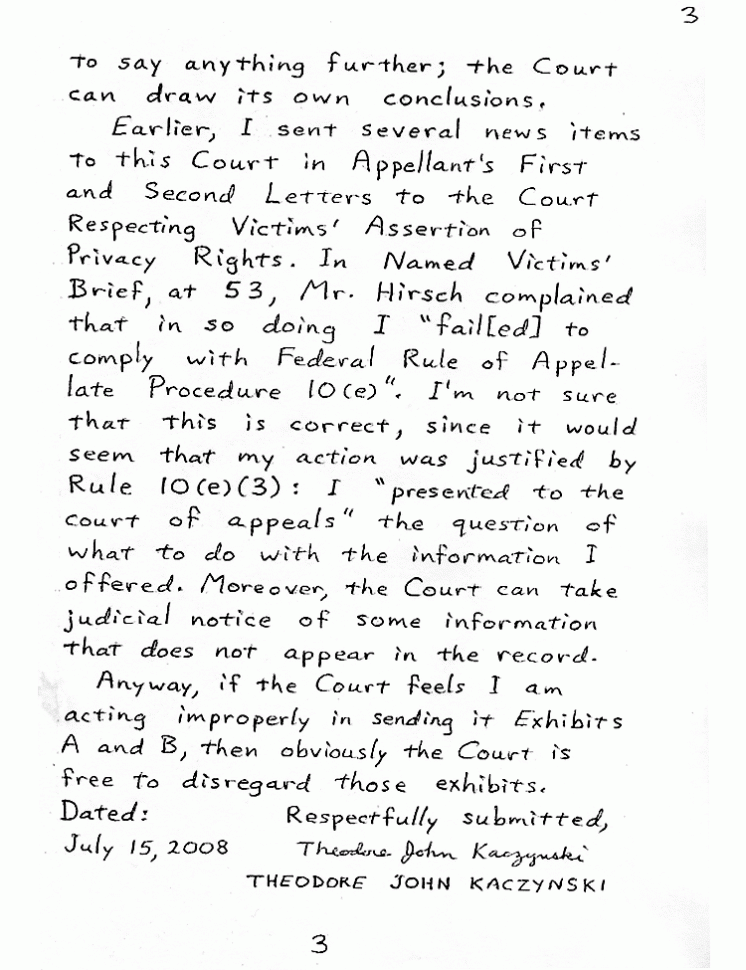 3
to say anything further; the Court
can draw its own conclusions.
Earlier, I sent several news items
to this Court in Appellant's First
and Second Letters to the Court
Respecting Victims' Assertion of
Privacy Rights. In Named Victims'
Brief, at 53, Mr. Hirsch complained
that in so doing I "fail[ed] to
comply with Federal Rule of Appel-
late Procedure 10(e)". I'm not sure
that this is correct, since it would
seem that my action was justified by
Rule 10(e)(3): I "presented to the
court of appeals" the question of
what to do with the information I
offered. Moreover, the Court can take
judicial notice of some information
that does not appear in the record.
Anyway, if the Court feels I am
acting improperly in sending it Exhibits
A and B, then obviously the Court is
free to disregard those exhibits.
Dated: Respectfully submitted,
July 15, 2008 Theodore John Kaczynski
THEODORE JOHN KACZYNSKI
3